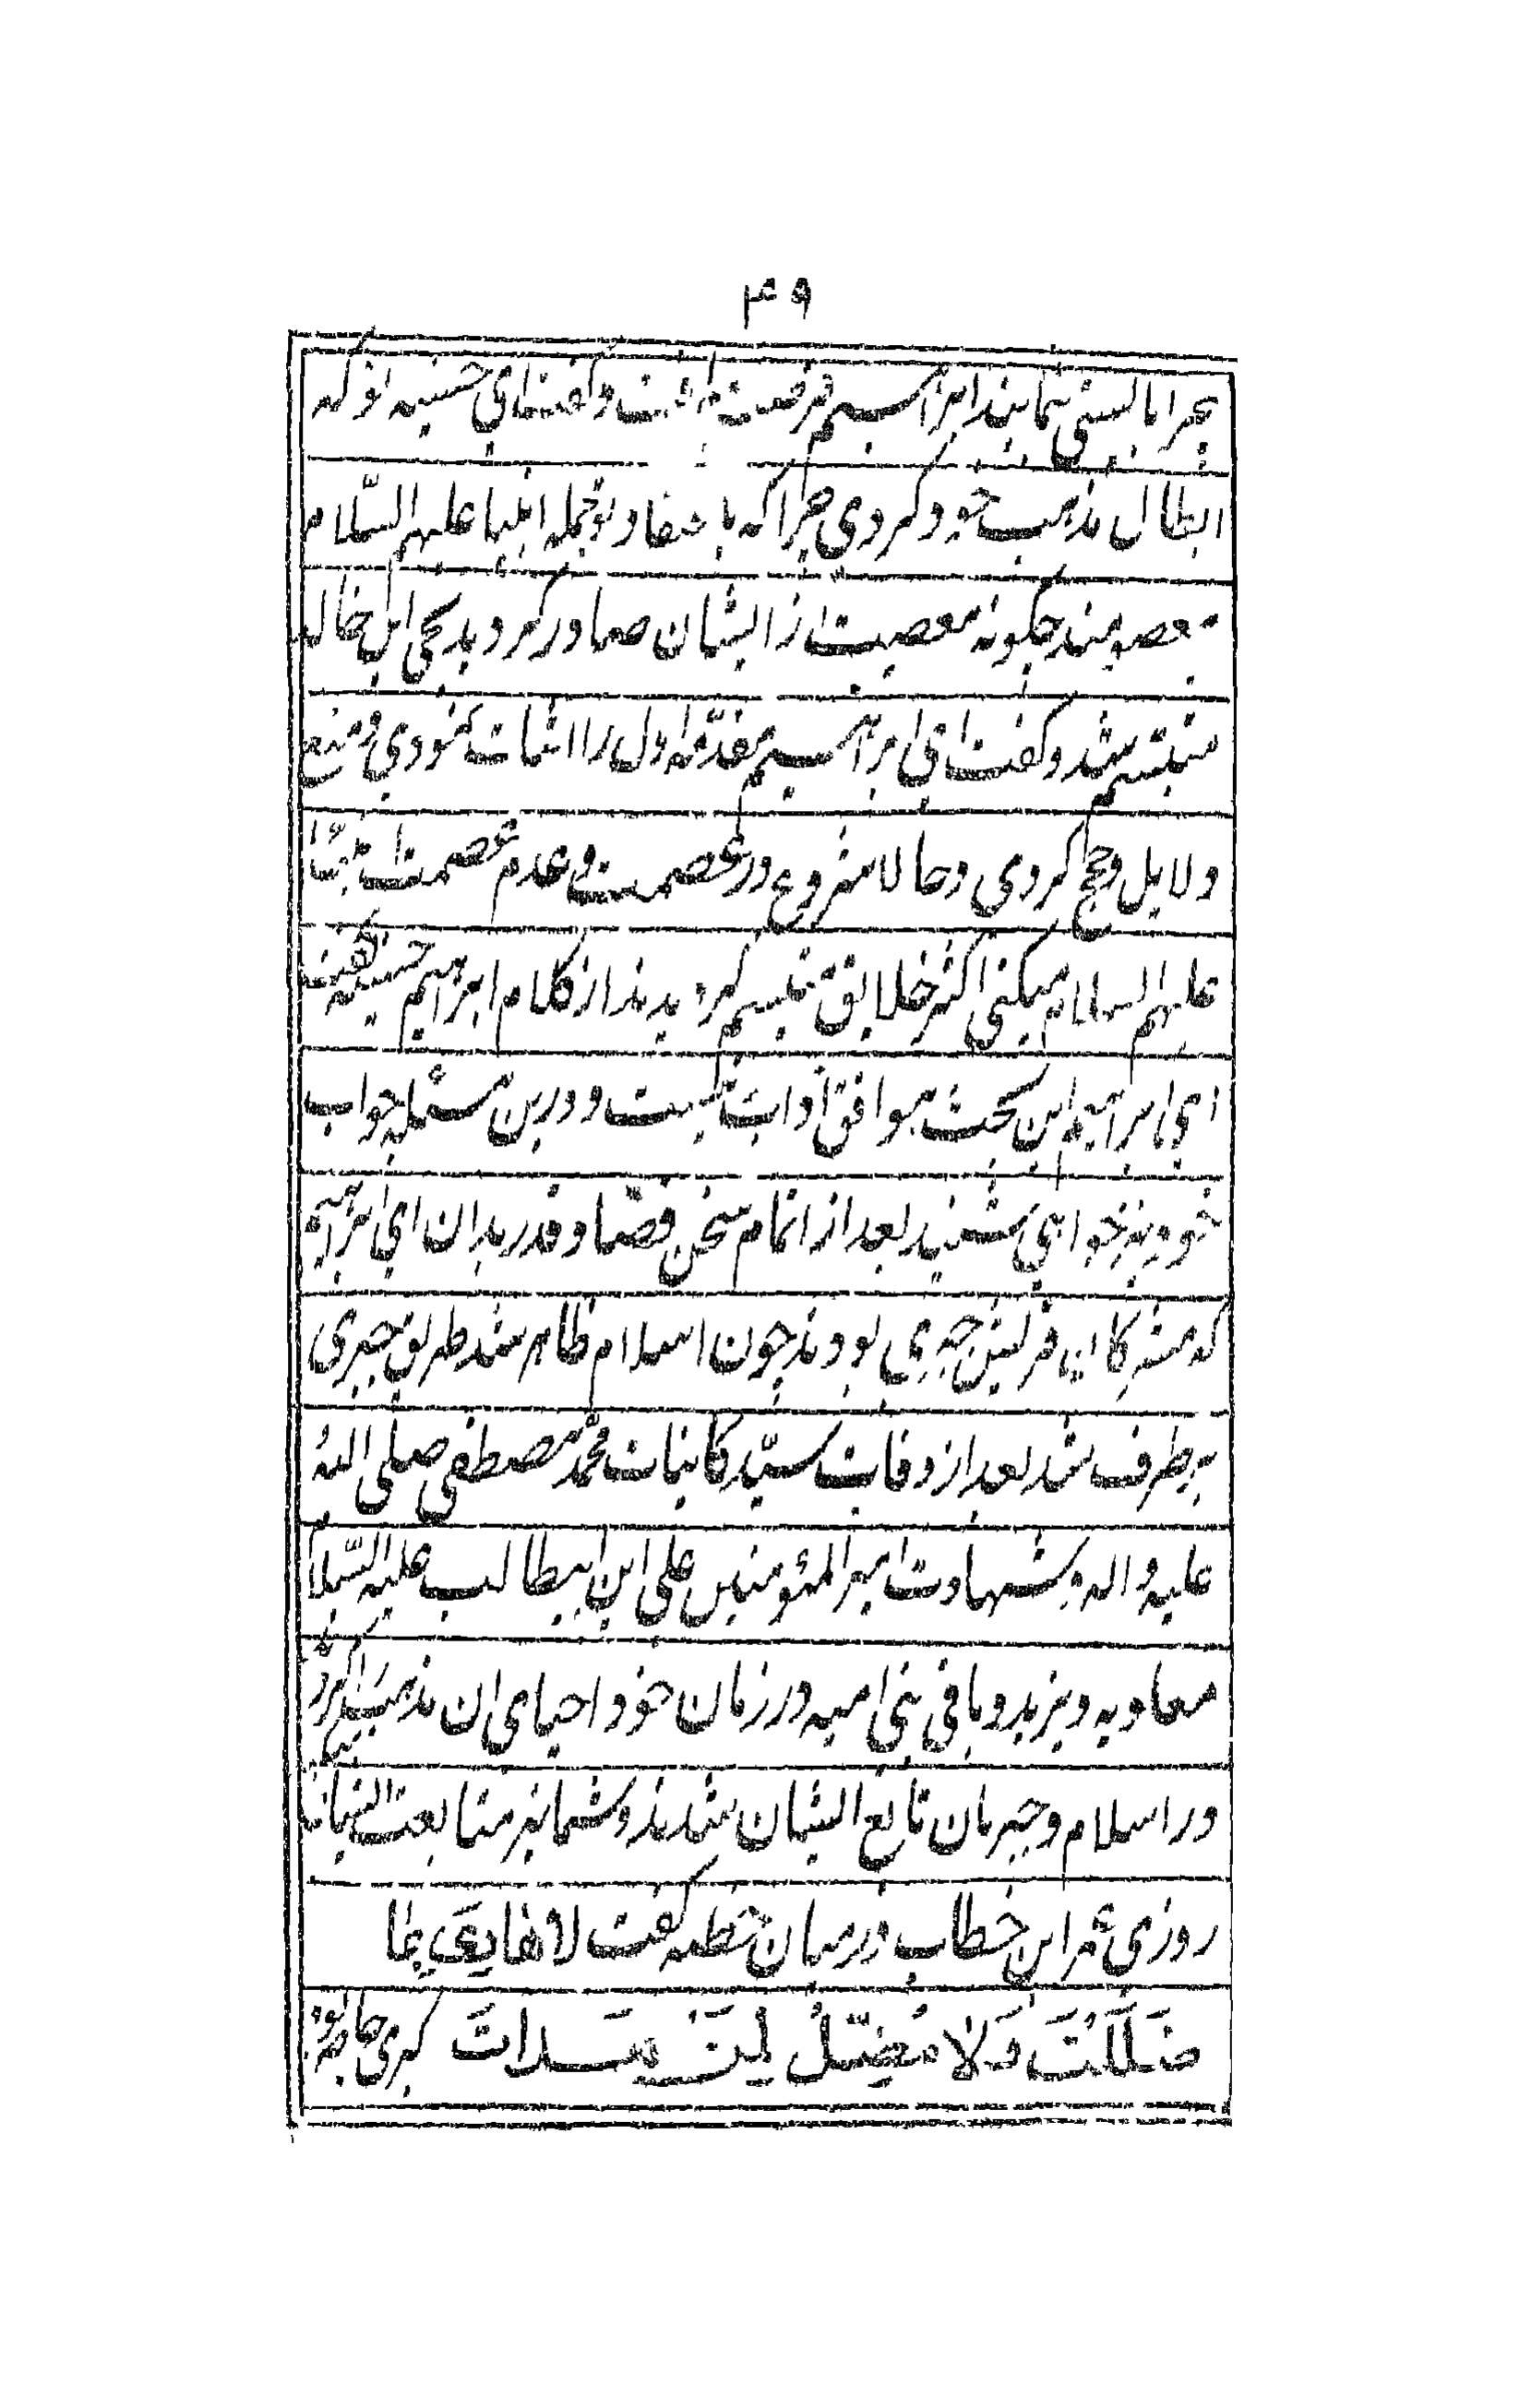 ۴۹
ابراهیم فرصت یافت و گفت ای حسنیه تو که
ابطال مذهب خود کردی چرا که باعتقاد تو جمله انبیا علیهم السّلام
معصومند چگونه معصیت از ایشان صادر گردید یحیی ابن خالد
متبسّم شد و گفت ای ابراهیم مقدّمه اول را اثبات نمودی و منع
دلایل و حجج کردی و حالا شروع در عصمت و عدم عصمت انبیا
علیهم السلام میکنی اکثر خلایق متبسم گردیدند از کلام ابراهیم حسنیه گفت
ای ابراهیم این بحث موافق آداب نیست و درین مسئله جواب
خود نیز خواهی شنید بعد از اتمام سخن قضا و قدر بدان ای ابراهیم
که مشرکان قریش جبری بودند چون اسلام ظاهر شد طریق جبری
برطرف شد بعد از وفات سیّد کاینات محمّد مصطفی صلی الله
علیه و اله و شهادت امیر المؤمنین علی ابن ابیطالب علیه السّلام
معاویه و یزید و باقی بنی امیه در زمان خود احیای ان مذهب کردند
در اسلام و جبریان تابع ایشان شدند و شما نیز متابعت ایشان
روزی عمر ابن خطاب در میان خطبه گفت لا هادی لما
ضللت و لا مضل لمن هدات کبری حاضر بود